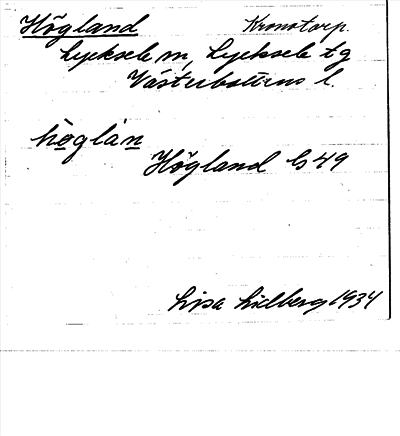 Högland Kronotorp.
Lycksele m, Lycksele tg
Västerbottens l.
hö̀glán
Högland Gs 49
Lisa Lidberg 1934